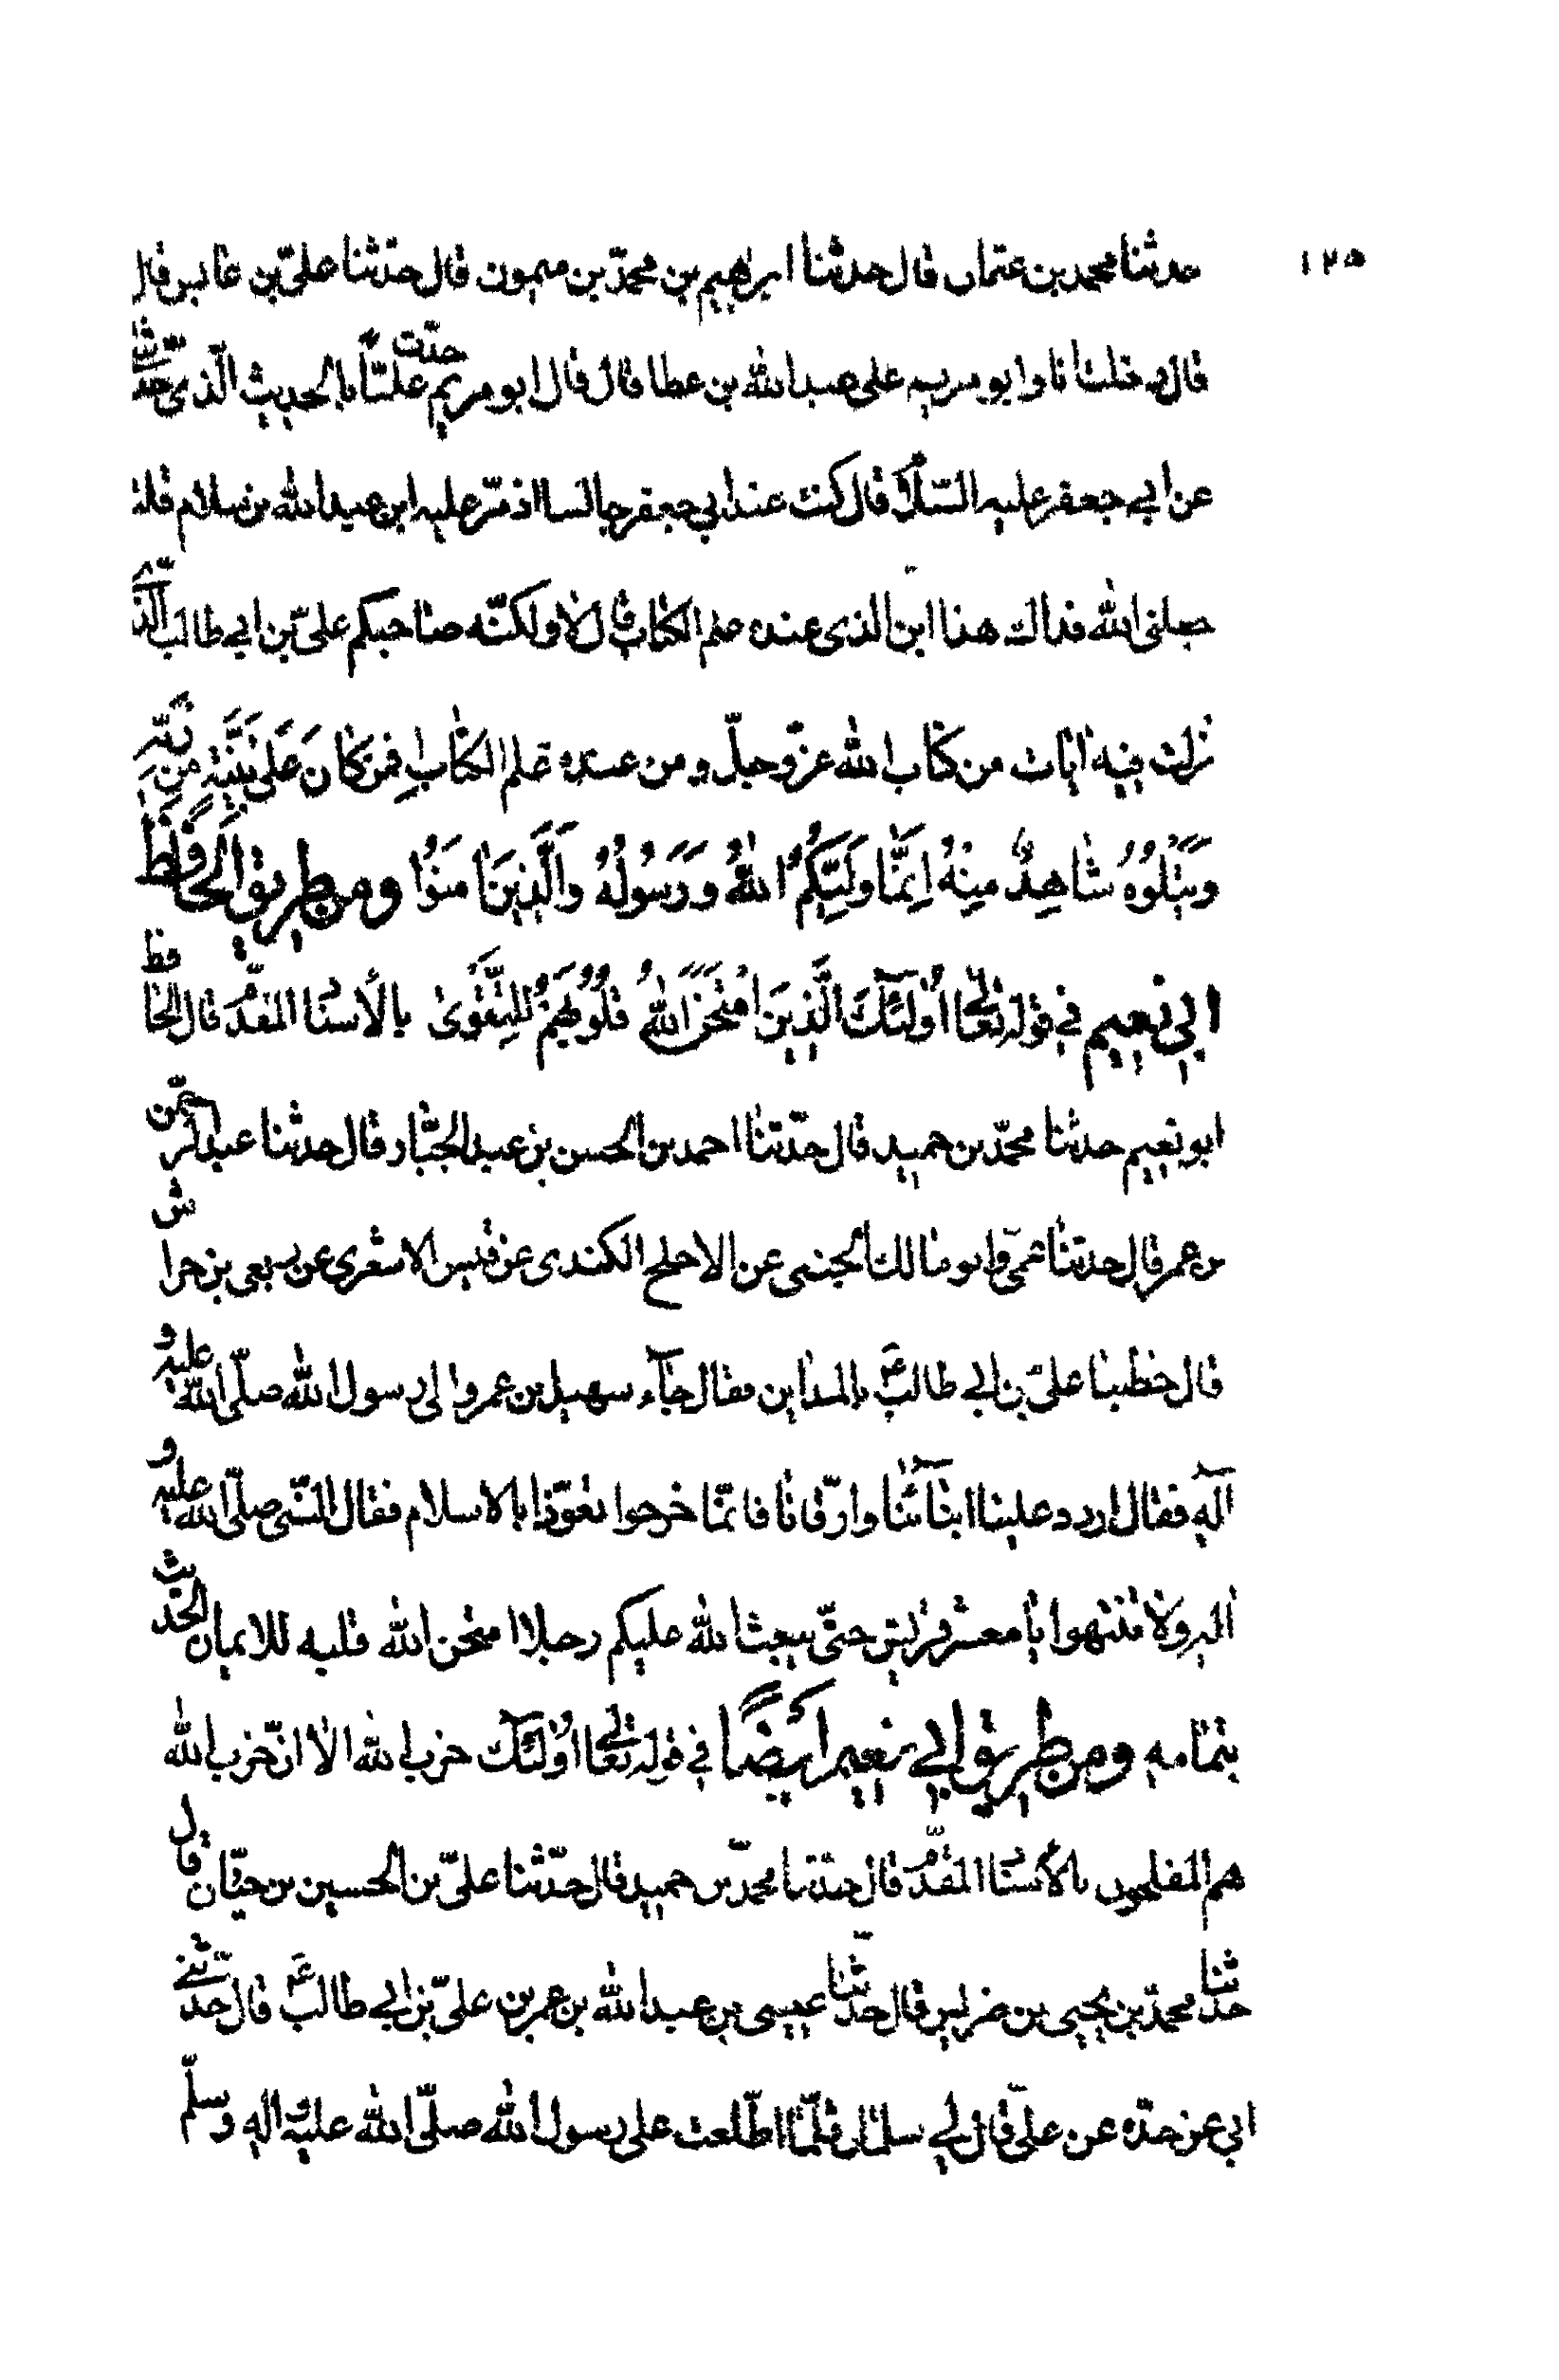 ١٢٥
حدثنا محمد بن عثمان قال حدثنا ابراهيم بن محمّد بن ميمون قال حدّثنا علىّ بن عابس قال
قال دخلت انا وابو مريم على عبد الله بن عطا قال قال ابو مريم حدّث عليّاً بالحديث الّذى حدّثتنى
عن ابي جعفر عليه السّلام قال كنت عند ابي جعفر جالسا اذ مرّ عليه ابن عبد الله بن سلام قلت
جعلنى الله فداك هذا ابن الذى عنده علم الكتاب قال لا ولكنّه صاحبكم علىّ بن ابي طالب الّذى
نزلت فيه ايات من كتاب الله عزّ وجلّ ومن عنده علم الكتابِ افمن كانَ عَلى بَيّنَةٍ من ربّه
وَيَتْلُوهُ شاهِدٌ مِنْهُ اِنَّما وَلِيّكُمُ اللهُ وَرَسُولُهُ والَّذينَ امَنُوا ومن طريق الحافظ
ابي نعيم في قوله تعالى اُولئكَ الَّذينَ امْتَحَنَ اللهُ قلُوبَهُمْ لِلتَّقْوى بالأسناد المقدّم قال الحافظ
ابو نعيم حدثنا محمّد بن حميد قال حدّثنا احمد بن الحسن بن عبد الجبّار قال حدثنا عبد الرحمن
بن عمر قال حدثنا عمّي وابو مالك الجنبى عن الاجلح الكندى عن قيس الاشعري عن ربعى بن حراش
قال خطبنا علىّ بن ابي طالب ع بالمداين فقال جآء سهيل بن عمرو الى رسول الله صلّى الله عليه و
آله فقال اردد علينا ابنآئنا وارقّانا فانّما خرجوا تعوّذا بالاسلام فقال النّبي صلّى الله عليه و
اله ولا تنتهوا يا معشر قريش حتّى يبعث الله عليكم رجلا امتحن الله قلبه للايمان الحديث
بتمامه ومن طريق ابي نعيم اَيضًا في قوله تعالى اُولئكَ حزب الله الا انّ حزب الله
هم المفلحون بالأسناد المقدّم قال حدثنا محمّد بن حميد قال حدّثنا علىّ بن الحسين بن حيّان قال
حدّثنا محمّد بن يحيى بن ضريس قال حدّثنا عيسى بن عبد الله بن عمر بن علىّ بن ابي طالب ع قال حدّثنى
ابي عن جدّه عن علىّ قال قال لي سلمان قلّما اطّلعت على رسول الله صلّى الله عليه و اله وسلّم